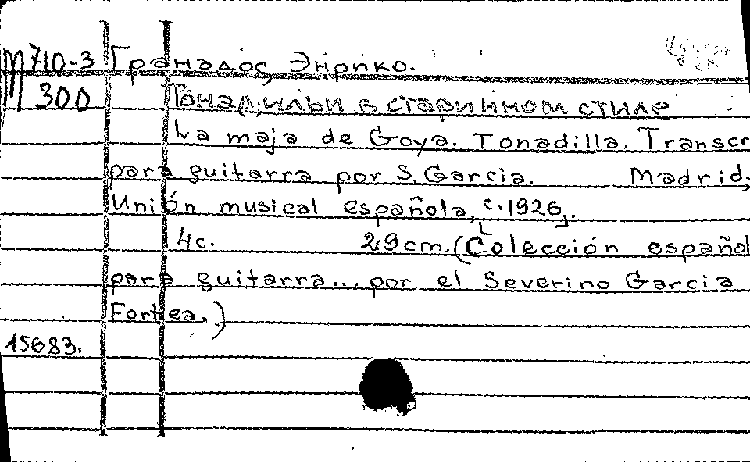 М710-3 Гранадос, Энрико.
300 Тонадильи в старинном стиле
La maja de Goya. Tonadilla. Transcr
para guitarra por S. Garcia. Madrid,
Unión musical española, [c.1926].
4c. 29cm. (Colección español
para guitarra... por el Severino Garcia
Fortea.)
15683.